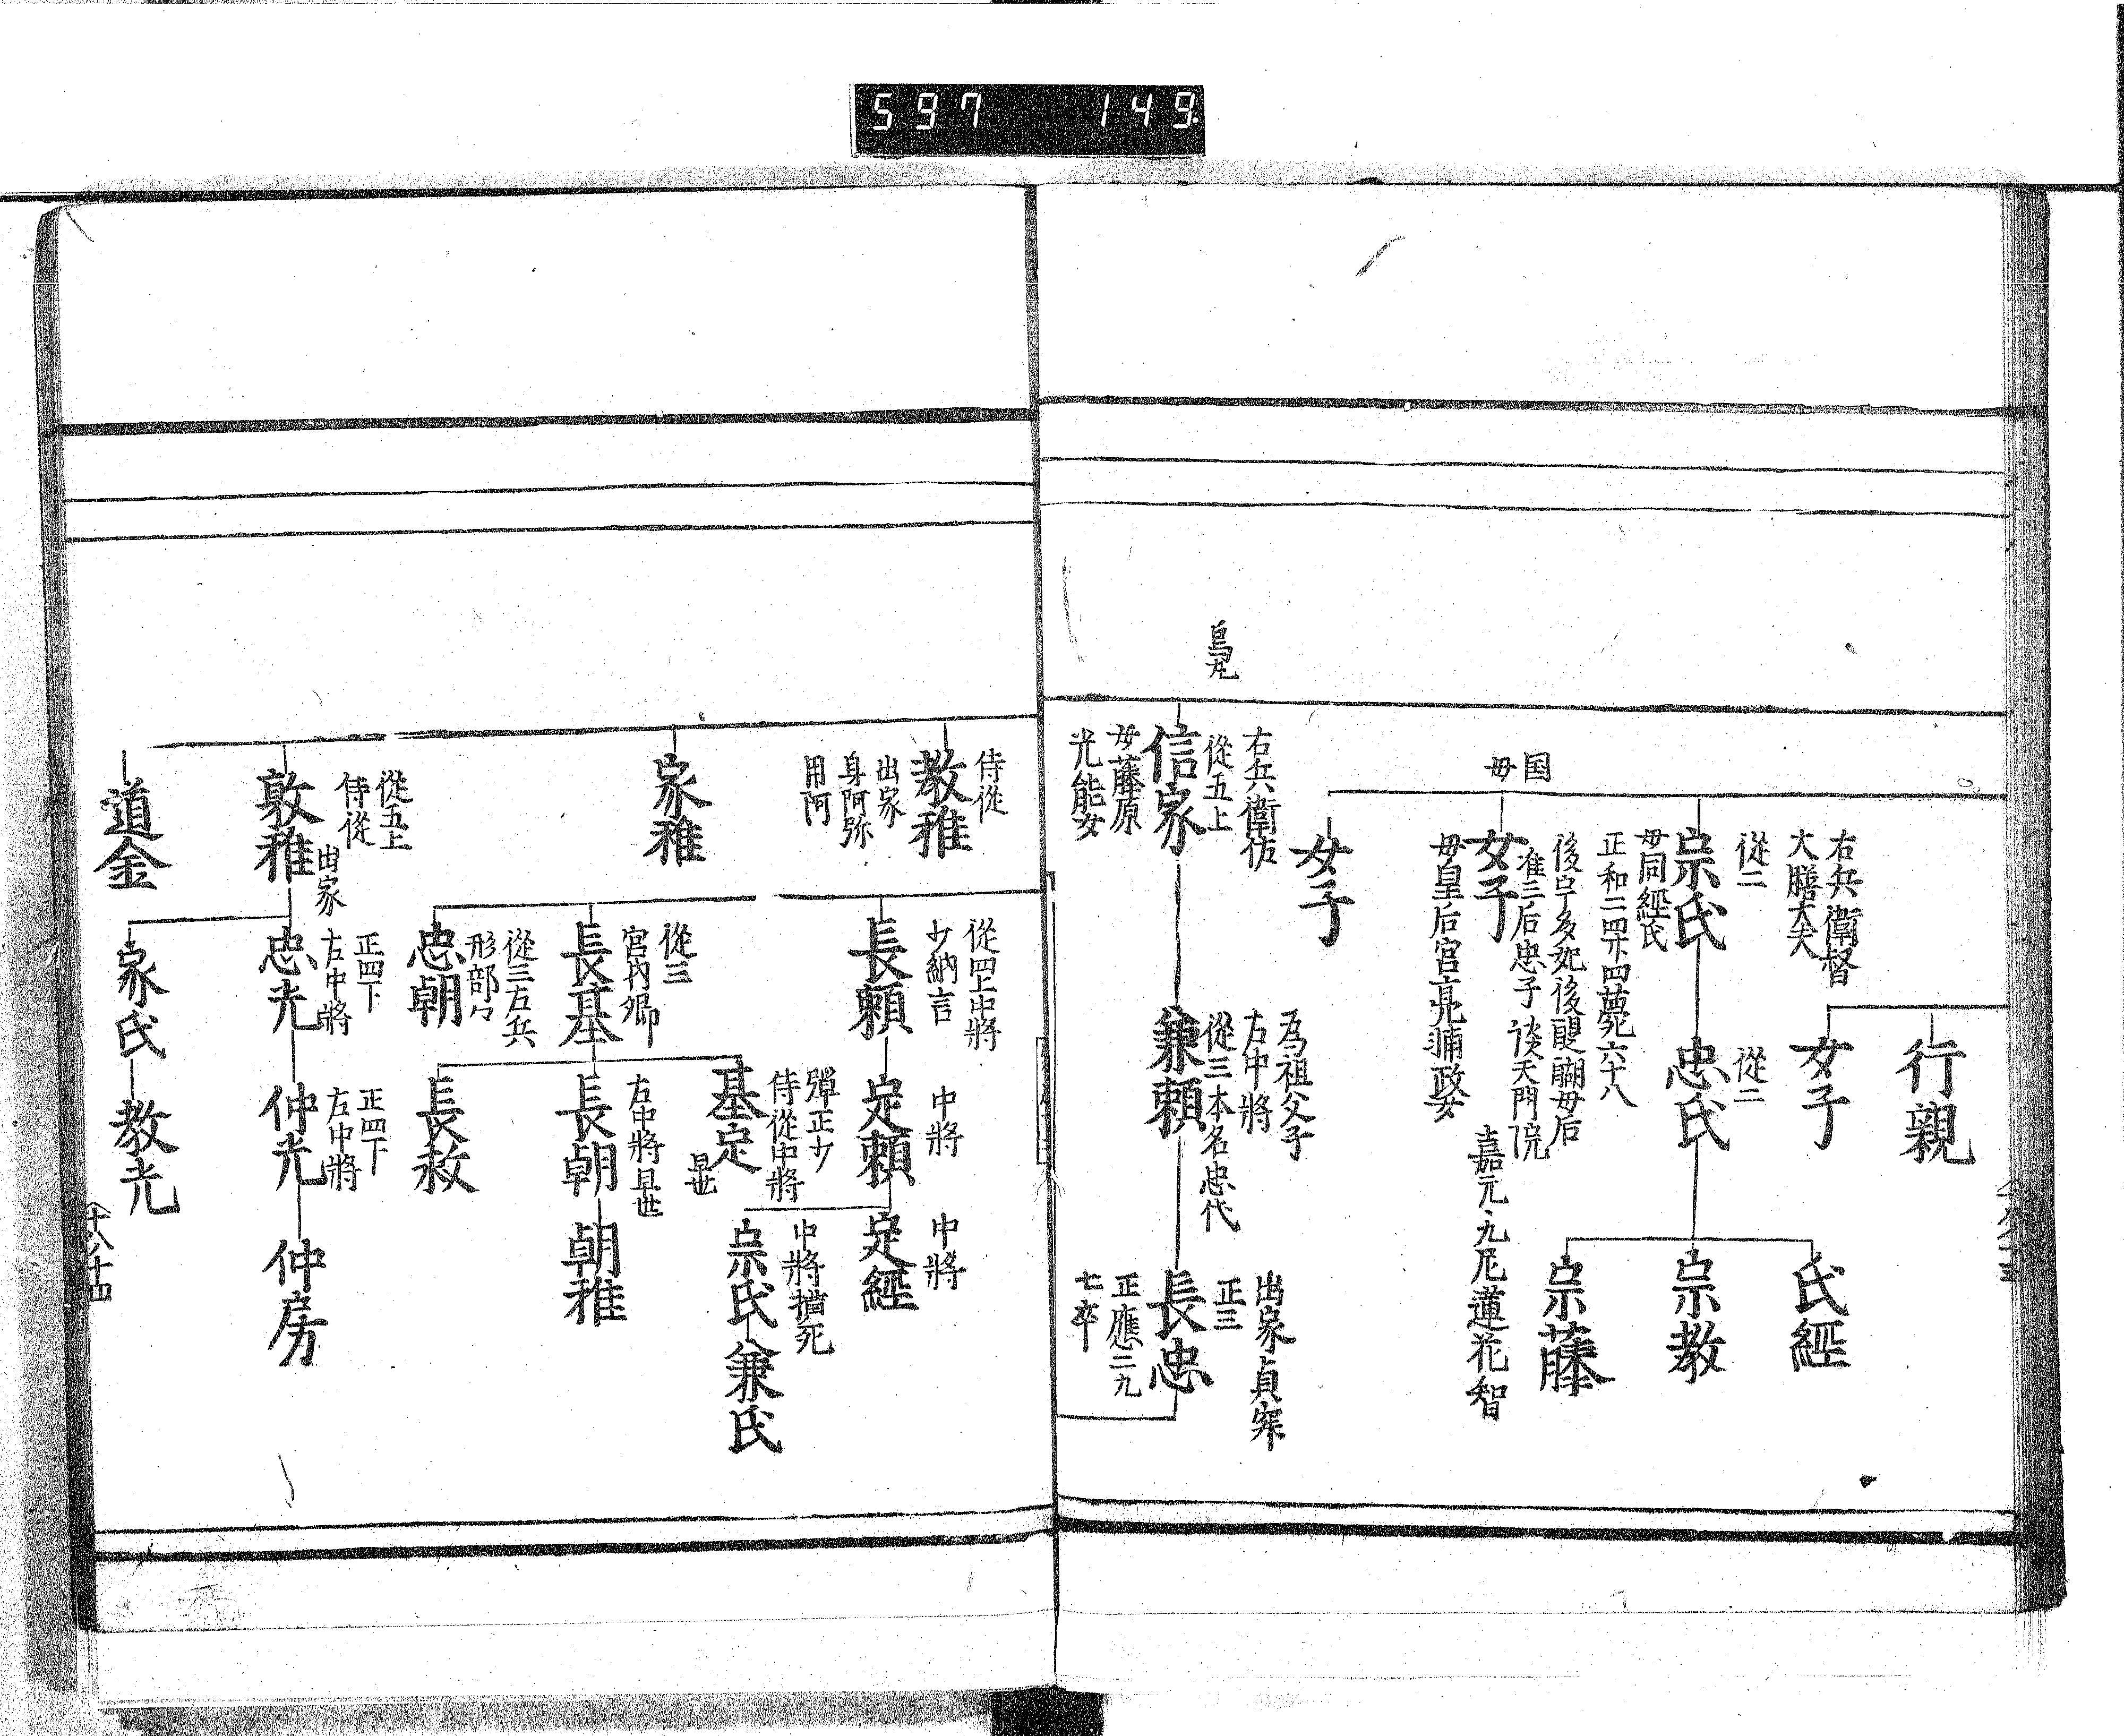 597 149
行親
女子
右兵衛督
大膳大夫
従二
宗氏
母同経氏
正和二四廿四薨六十八
従二
忠氏
氏経
宗教
宗藤
国母
女子
准三后忠子 談天門院
後宇多妃後醍醐母后
嘉元・九尼蓮花智
母皇后宮亮浦政女
女子
烏丸
右兵衛佐
従五上
信家
母藤原
光能女
為祖父子
右中将
従三本名忠代
兼頼
出家貞寂
正三
長忠
正應三九
七卒
侍従
教雅
出家
身阿弥
用阿
従四上中将
少納言
長頼
中将
定頼
中将
定経
中将横死
宗氏
兼氏
家雅
従三
宮内卿
長基
弾正少
侍従中将
基定
早世
右中将早世
長朝
朝雅
長敦
従三右兵
形部々
忠朝
従五上
侍従
敦雅
出家
正四下
右中将
忠光
正四下
左中将
仲光
仲房
道金
家氏
教光
十八ノ十四